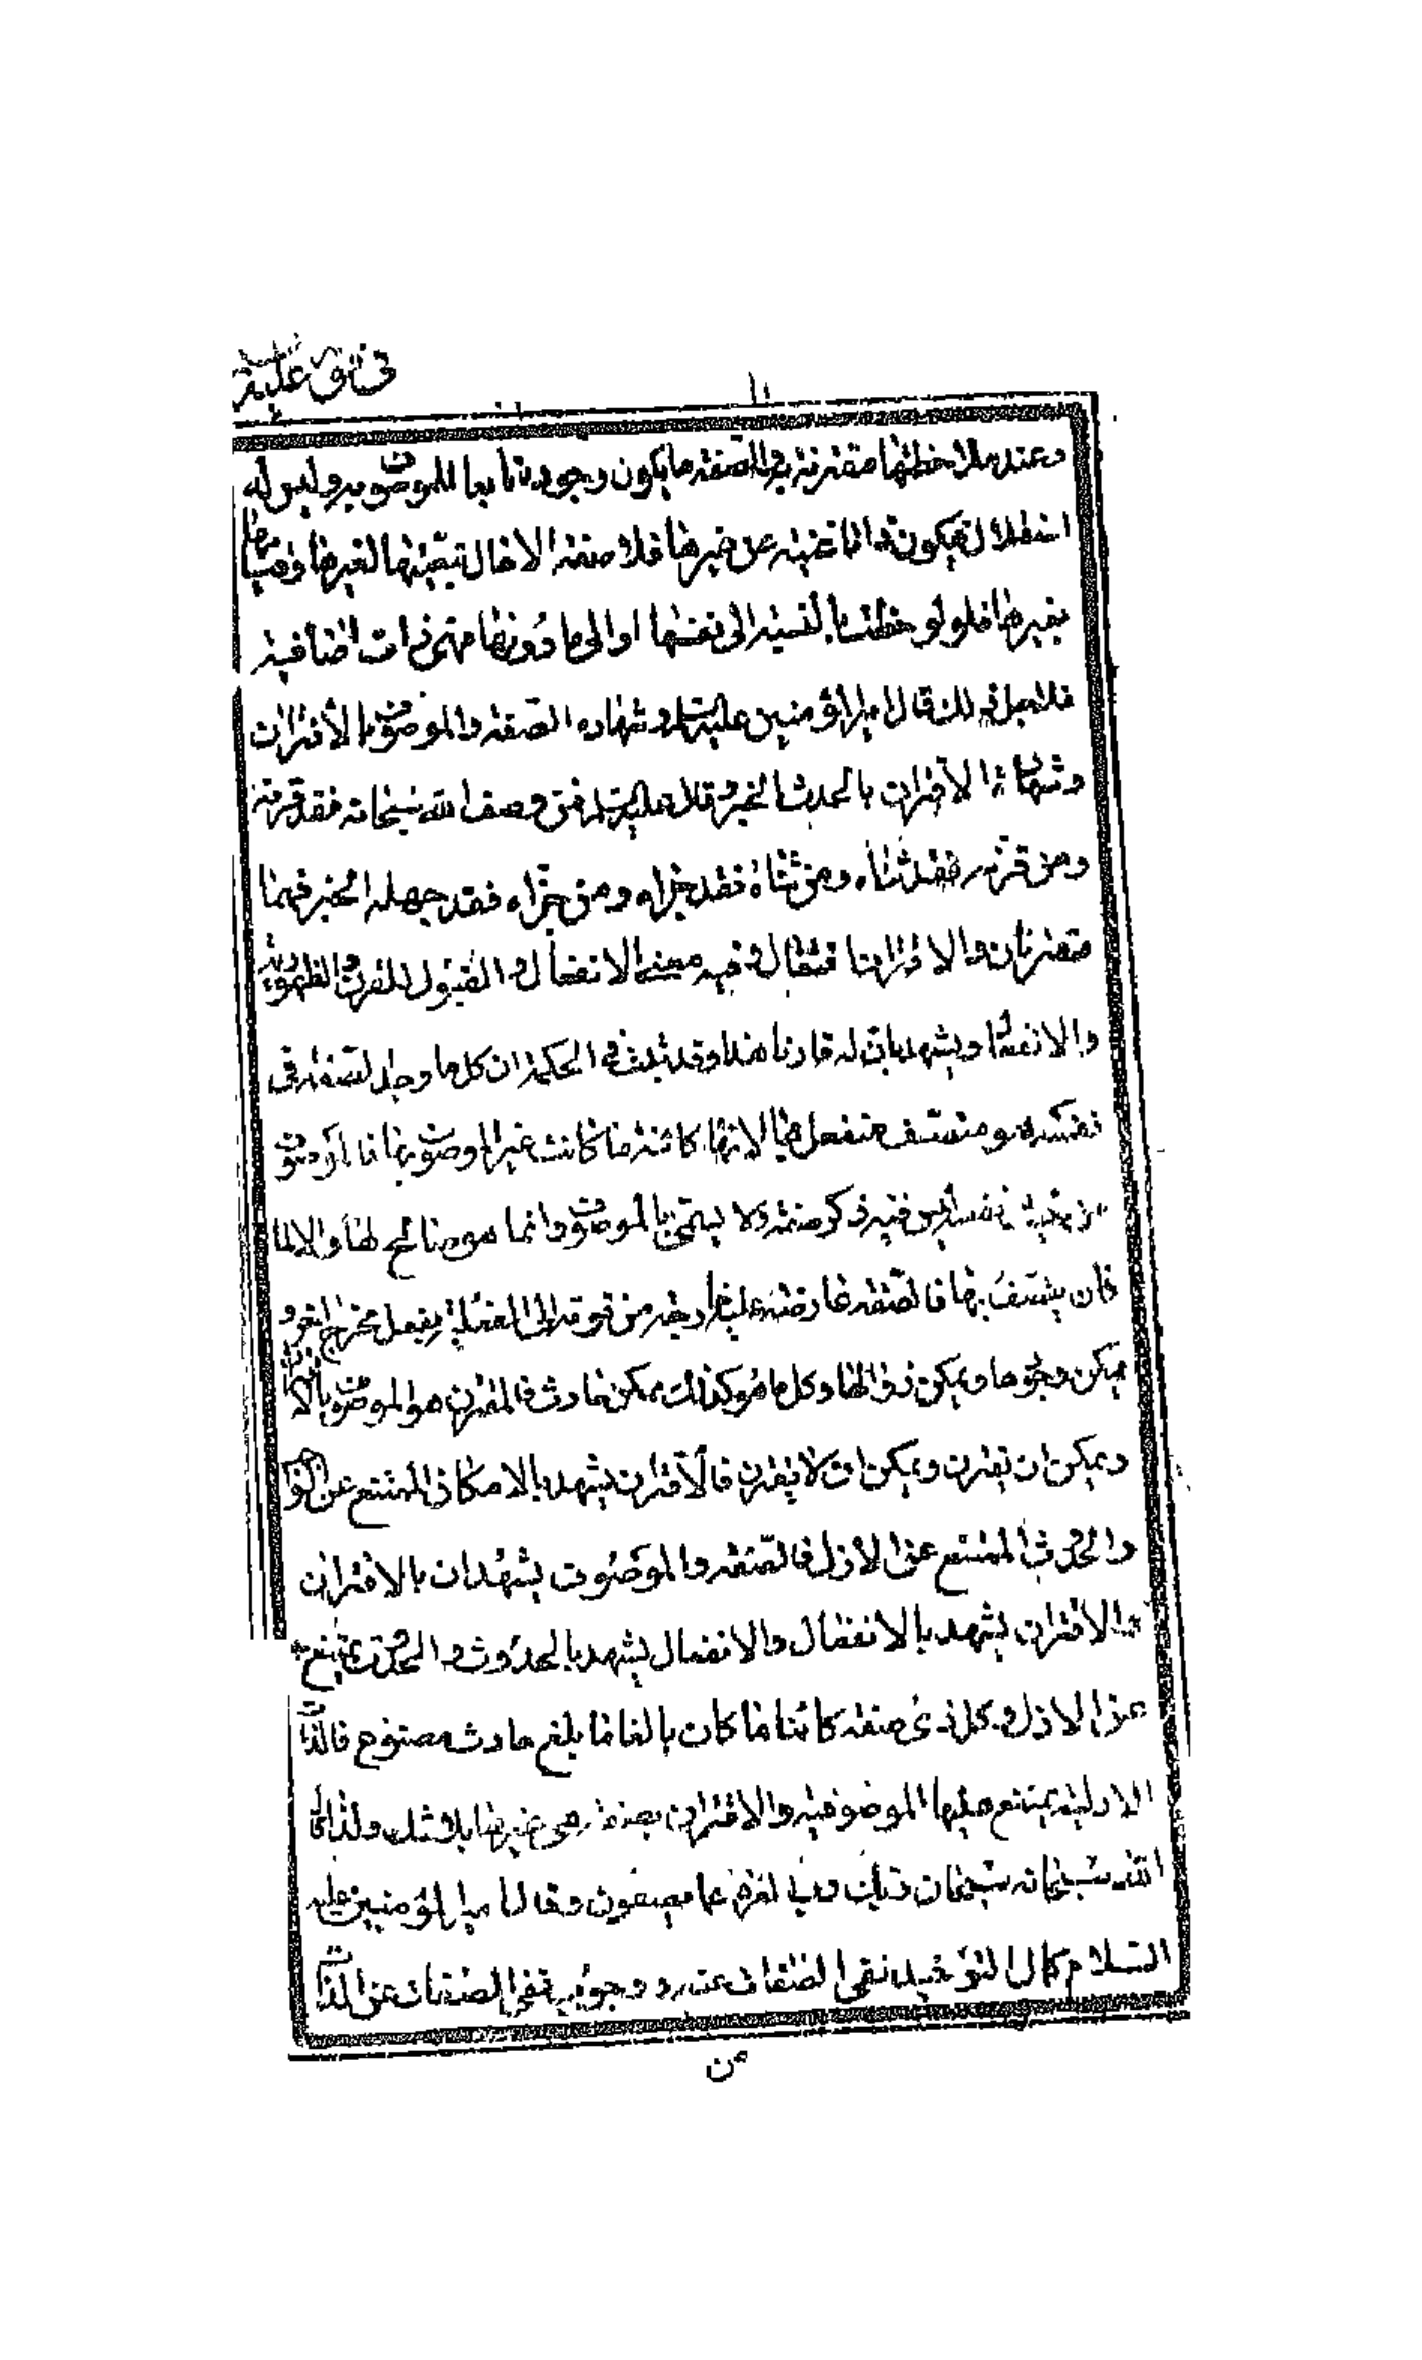 ١١
وعند ملاحظتها مقترنة به والصفة ما يكون وجوده تابعا للموصوف به وليس له
استقلال فيكون ذاتا غنية عن غيرها فلا صفة الا حال تبعيتها لغيرها وقيامها
بغيرها فلو لوحظت بالنسبة الى نفسها او الى ما دونها فهى ذات اضافية
فلاجل ذلك قال امير المؤمنين عليه السلم وشهادة الصفة والموصوف بالاقتران
وشهادة الاقتران بالحدث الخبر وقال عليه السلم فمن وصف الله سبحانه فقد قرنه
ومن قرنه فقد ثناه ومن ثناه فقد جزاه ومن جزاه فقد جهله الخبر فهما
مقترنان والاقتران افتعال وفيه معنى الانفعال والقبول للقرن والظهور به
والانفعال ويشهد بان له قارنا هذا وقد ثبت فى الحكمة ان كل ما وجد لصفة فى
نفسه هو متصف منفعل بها لانها كائنة ما كانت غير الموصوف بها فالموصوف
من حيث نفسه ليس فيه ذكر صفة ولا يسمى بالموصوف وانما هو صالح لها والا لما
كان يتصف بها فالصفة عارضة عليها خارجة من قوة الى الفعلية بفعل مخرج لغيره
يمكن وجودها ويمكن زوالها وكل ما هو كذلك ممكن حادث فالمقترن هو الموصوف بالامكان
ويمكن ان يقترن ويمكن ان لا يقترن فالاقتران يشهد بالامكان الممتنع عن
والحدوث الممتنع عن الازل فالصفة والموصوف يشهدان بالاقتران
والاقتران يشهد بالانفعال والانفعال يشهد بالحدوث والحدوث يمتنع
عن الازل وكل ذى صفة كائنا ما كان بالغا ما بلغ حادث مصنوع فالذات
الازلية يمتنع عليها الموصوفية والاقتران بصفة هى غيرها بلا شك ولذا قال
الله سبحانه سبحان ربك رب العزة عما يصفون وقال امير المؤمنين عليه
السلام كمال التوحيد نفى الصفات عنه ووجوب نفى الصفات عن الذات
من